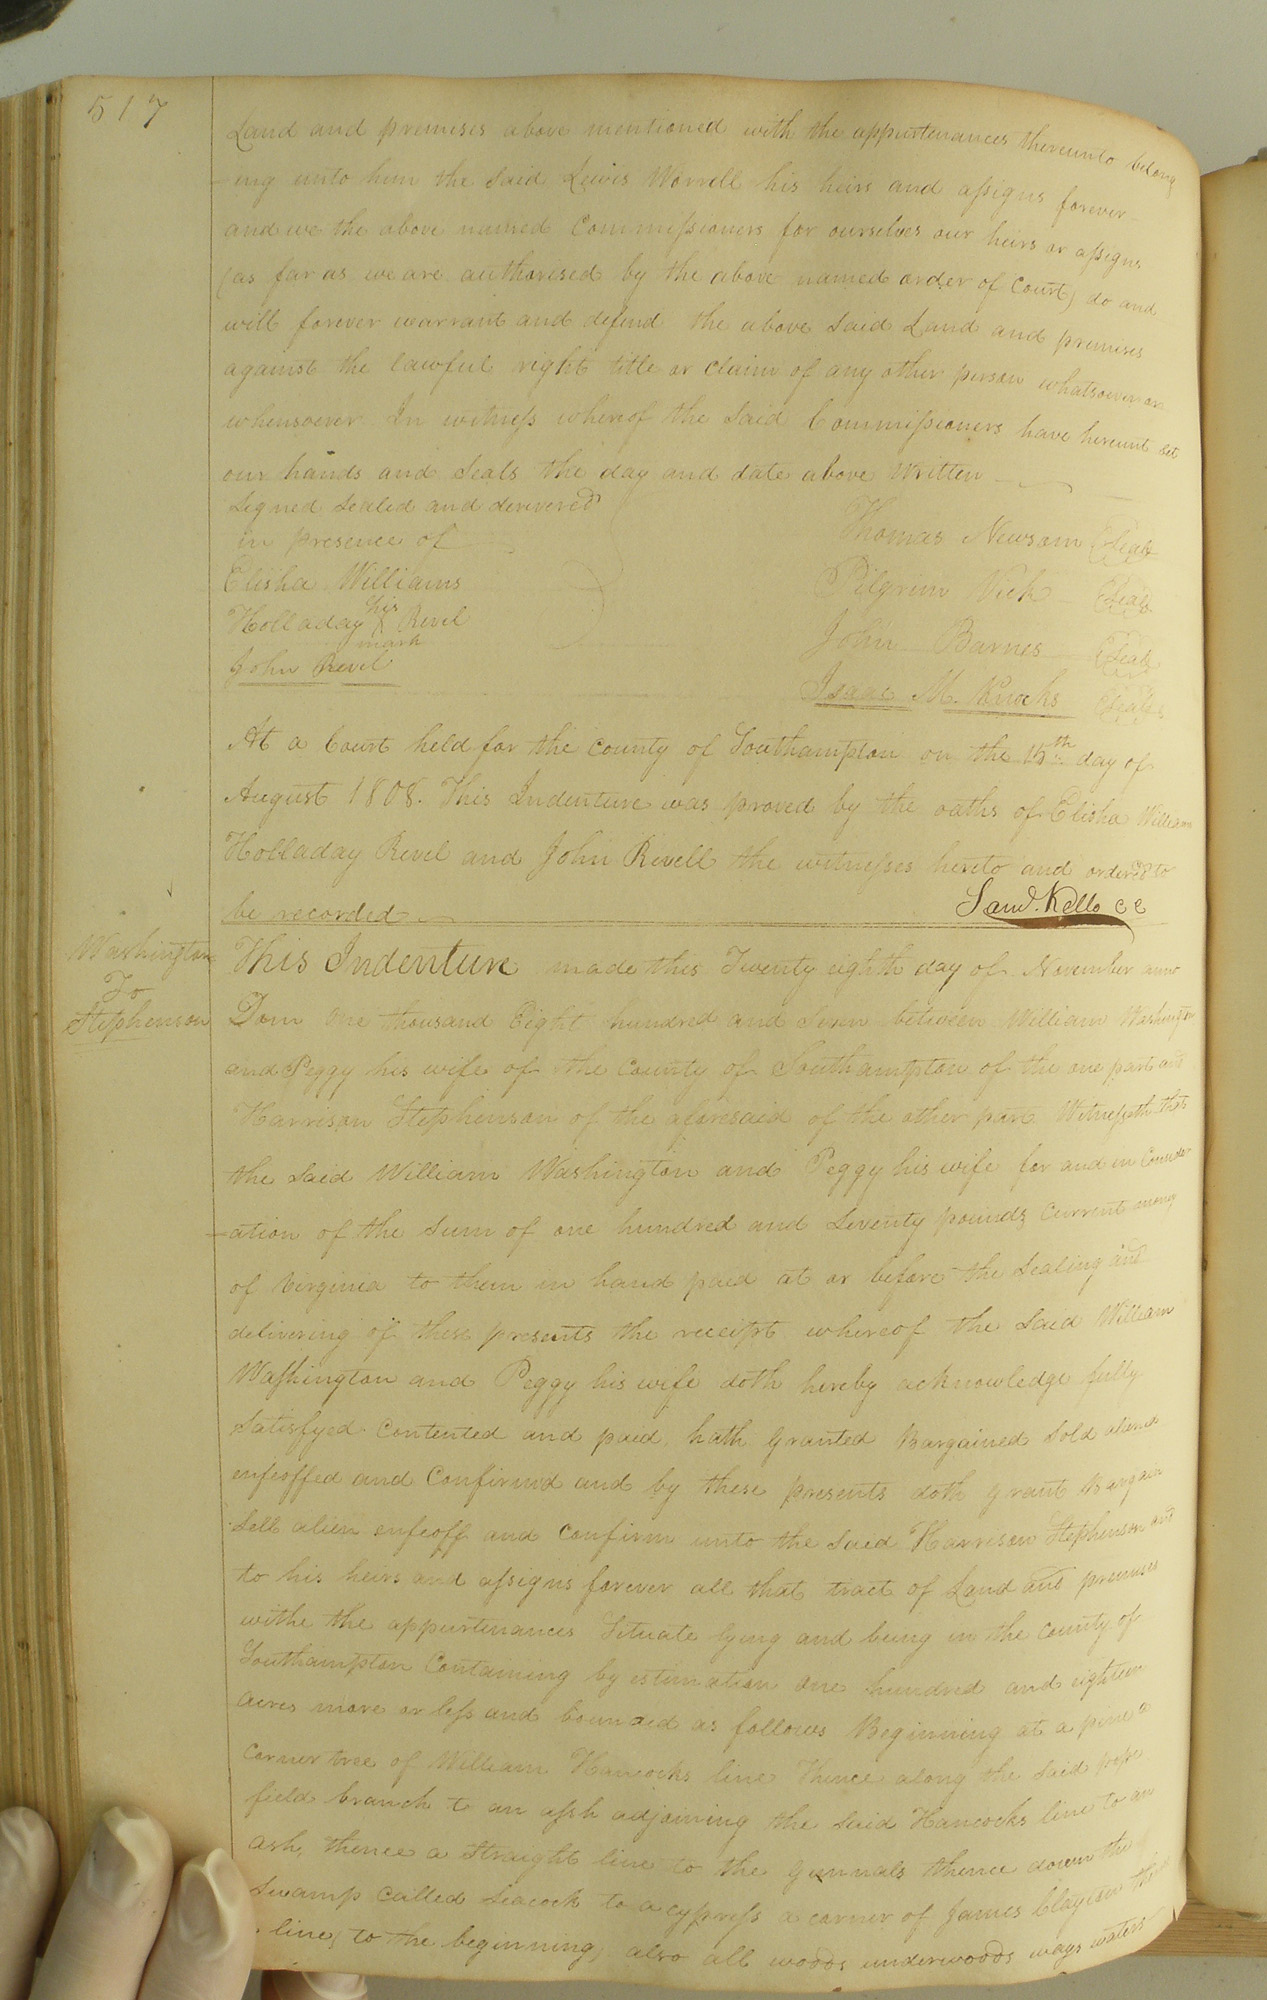 517
Land and premises above mentioned with the appurtenances thereunto belong
-ing unto him the said Lewis Worrell his heirs and assigns forever
and we the above named Commissioners for ourselves our heirs or assigns
(as far as we are authorised by the above named order of Court) do and
will forever warrant and defend the above said Land and premises
against the lawful right title or claim of any other person whatsoever or
whensoever In witness whereof the said Commissioners have hereunt set
our hands and Seals the day and date above Written
Signed Sealed and delivered
in presence of
Elisha Williams
Holladay his X mark Revel
John Revel
Thomas Newsom Seal
Pilgrim Vick Seal
John Barnes Seal
Isaac M. Seal
At a Court held for the County of Southampton on the 15th day of
August 1808. This Indenture was proved by the oaths of Elisha William
Holladay Revel and John Revell the witnesses hereto and ordered to
be recorded
Saml. Kello CC
Washington
To
Stephenson
This Indenture made this Twenty eighth day of November anno
Dom One thousand Eight hundred and Seven between William Washington
and Peggy his wife of the County of Southampton of the one part and
Harrison Stephenson of the aforesaid of the other part Witnesseth that
the said William Washington and Peggy his wife for and in Consider
-ation of the Sum of one hundred and Seventy pounds Current money
of Virginia to them in hand paid at or before the Sealing and
delivering of these presents the receipt whereof the said William
Washington and Peggy his wife doth hereby acknowledge fully
Satisfyed Contented and paid hath granted Bargained Sold aliend
enfeoffed and Confirmd and by these presents doth grant Bargain
Sell alien enfeoff and Confirm unto the Said Harrison Stephenson and
to his heirs and assigns forever all that tract of Land and premises
withe the appurtenances Situate lying and being in the County of
Southampton Containing by estimation One hundred and eighteen
acres more or less and bounded as follows Beginning at a pine a
Corner tree of William Hancocks line thence along the said
field branch to an ash adjoining the said Hancocks line to an
ash, thence a Straight line to the thence down the
Swamp Called Seacock to a cypress a corner of James Clayton
line, to the beginning, also all woods underwoods ways waters